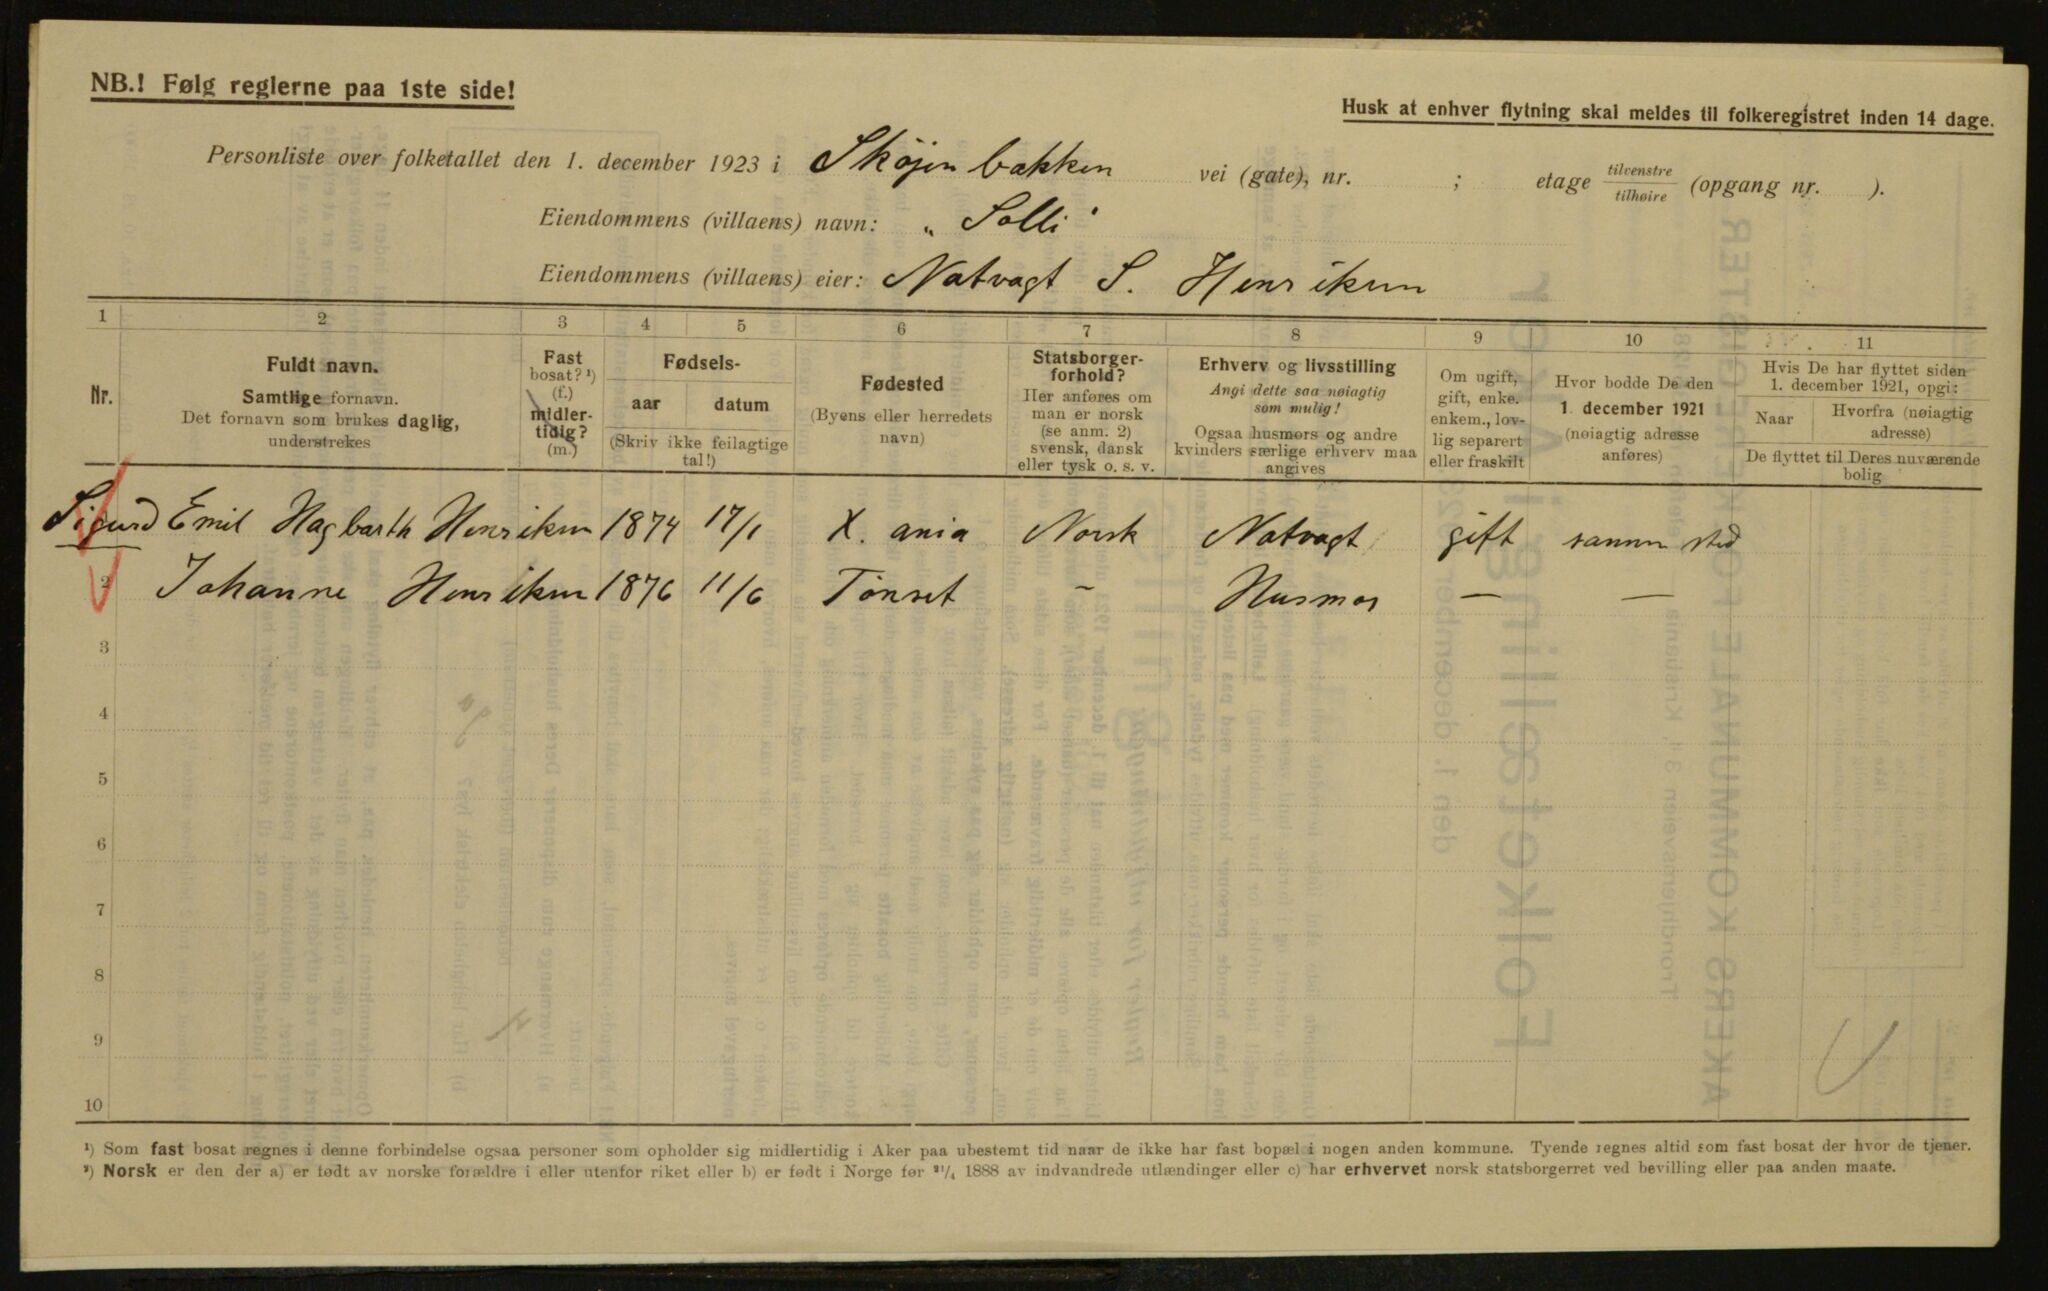 NB.! Følg reglerne paa 1ste side!
Husk at enhver flytning skal meldes til folkeregistret inden 14 dage.
Personliste over folketallet den 1. december 1923 i Skøjenbakken vei (gate), nr. ; etage tilvenstre/tilhøire (opgang nr. ).
Eiendommens (villaens) navn: „Solli"
Eiendommens (villaens) eier: Natvagt S. Henriksen
1 2 3 4 5 6 7 8 9 10 11
Nr.
Fuldt navn.
Samtlige fornavn.
Det fornavn som brukes daglig,
understrekes
Fast
bosat? ¹)
(f.)
midler-
tidig?
(m.)
Fødsels-
aar datum
(Skriv ikke feilagtige
tal!)
Fødested
(Byens eller herredets
navn)
Statsborger-
forhold?
Her anføres om
man er norsk
(se anm. 2)
svensk, dansk
eller tysk o. s. v.
Erhverv og livsstilling
Angi dette saa nøiagtig
som mulig!
Ogsaa husmors og andre
kvinders særlige erhverv maa
angives
Om ugift,
gift, enke.
enkem., lov-
lig separert
eller fraskilt
Hvor bodde De den
1 december 1921
(nøiagtig adresse
anføres)
Hvis De har flyttet siden
1. december 1921, opgi:
Naar Hvorfra (nøiagtig
adresse)
De flyttet til Deres nuværende
bolig
Sigurd Emil Hagbarth Henriksen 1874 17/1 X. ania Norsk Natvagt gift samme sted
2 Johanne Henriksen 1876 11/6 Tønset - Husmor - -
3
4
5
6
7
8
9
10
¹) Som fast bosat regnes i denne forbindelse ogsaa personer som opholder sig midlertidig i Aker paa ubestemt tid naar de ikke har fast bopæl i nogen anden kommune. Tyende regnes altid som fast bosat der hvor de tjener.
²) Norsk er den der a) er født av norske forældre i eller utenfor riket eller b) er født i Norge før ²¹/₄ 1888 av indvandrede utlændinger eller c) har erhvervet norsk statsborgerret ved bevilling eller paa anden maate.